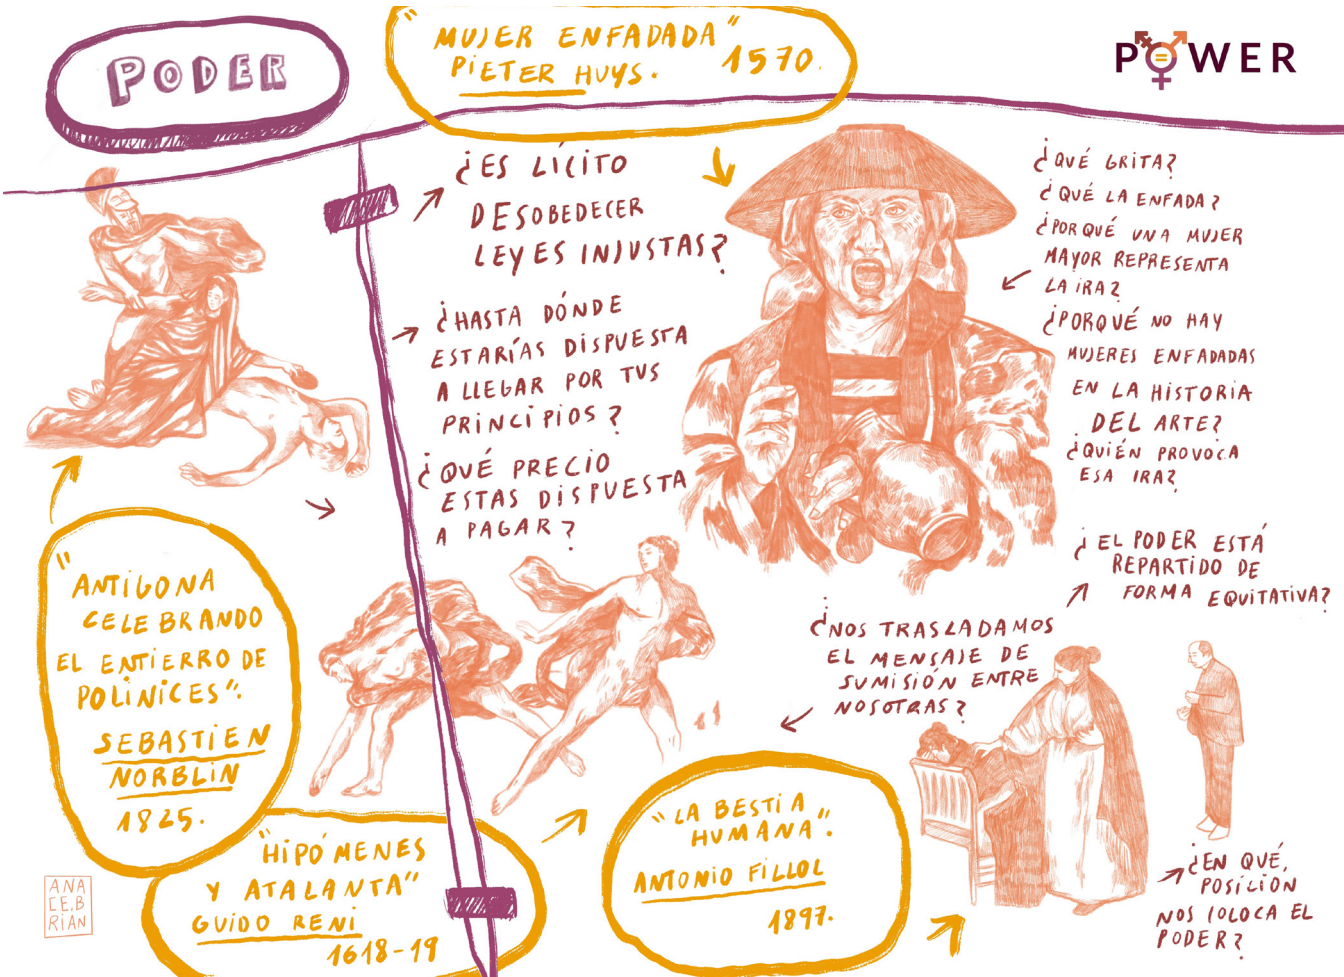 PODER
"MUJER ENFADADA"
PIETER HUYS. 1570.
POWER
¿ES LÍCITO
DESOBEDECER
LEYES INJUSTAS?
¿HASTA DÓNDE
ESTARÍAS DISPUESTA
A LLEGAR POR TUS
PRINCIPIOS?
¿QUÉ PRECIO
ESTAS DISPUESTA
A PAGAR?
¿QUÉ GRITA?
¿QUÉ LA ENFADA?
¿PORQUÉ UNA MUJER
MAYOR REPRESENTA
LA IRA?
¿PORQUÉ NO HAY
MUJERES ENFADADAS
EN LA HISTORIA
DEL ARTE?
¿QUIÉN PROVOCA
ESA IRA?
¿EL PODER ESTÁ
REPARTIDO DE
FORMA EQUITATIVA?
¿NOS TRASLADAMOS
EL MENSAJE DE
SUMISIÓN ENTRE
NOSOTRAS?
"ANTÍGONA
CELEBRANDO
EL ENTIERRO DE
POLINICES".
SEBASTIEN
NORBLIN
1825.
"HIPÓMENES
Y ATALANTA"
GUIDO RENI
1618-19
"LA BESTIA
HUMANA".
ANTONIO FILLOL
1897.
¿EN QUÉ,
POSICIÓN
NOS COLOCA EL
PODER?
ANA
CEB
RIAN